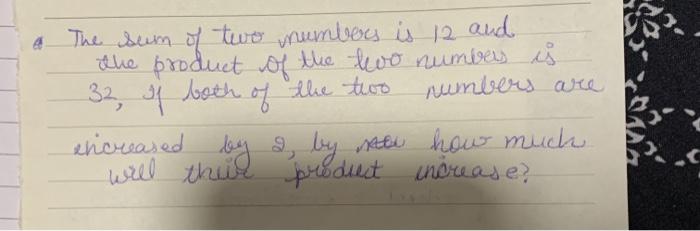 The sum of two numbers is 12 and
the product of the two numbers is
32, If both of the two numbers are
increased by 2, by how much
will their product increase?